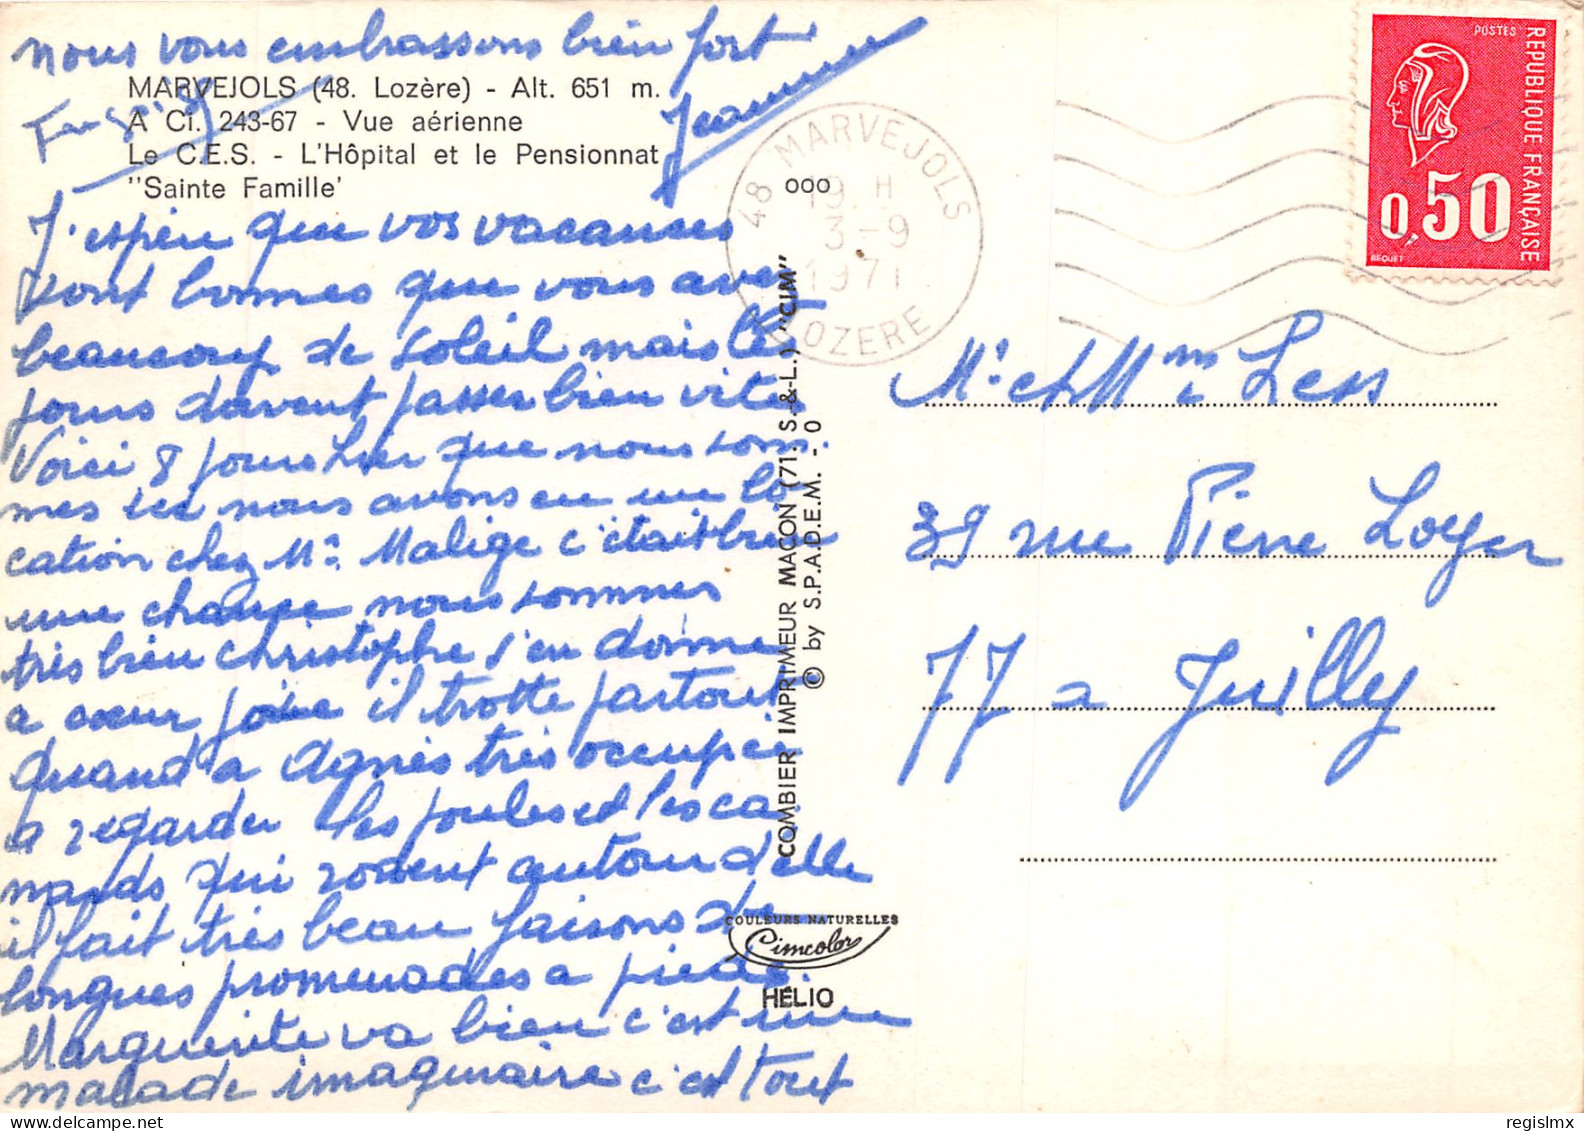 nous vous embrassons bien fort
MARVEJOLS (48. Lozère) - Alt. 651 m.
A Ci. 243-67 - Vue aérienne
Le C.E.S. - L'Hôpital et le Pensionnat
''Sainte Famille'
J'espère que vos vacances
sont bonnes que vous avez
beaucoup de soleil mais les
jours doivent passer bien vites
Voici 8 jours hier que nous som-
mes ici nous avons eu une lo-
cation chez Mr Malige c'était bien
une chance nous sommes
très bien christophe s'en donne
a cœur joie il trotte partout
quand a Agnès très occupée
a regarder les poules et les ca-
nards qui rodent autour d'elle
il fait très beau faisons de
longues promenades a pieds.
Marguerite va bien c'est une
malade imaginaire c'est tout
48 MARVEJOLS
19 H
3-9
1971
LOZERE
ooo
COMBIER IMPRIMEUR MACON (71. S.-&-L.) "CIM"
© by S.P.A.D.E.M. - 0
COULEURS NATURELLES
Cimcolor
HÉLIO
POSTES
REPUBLIQUE FRANÇAISE
0,50
BEQUET
Mr et Mme Less
39 rue Pierre Loyer
77 a Juilly
regislmx